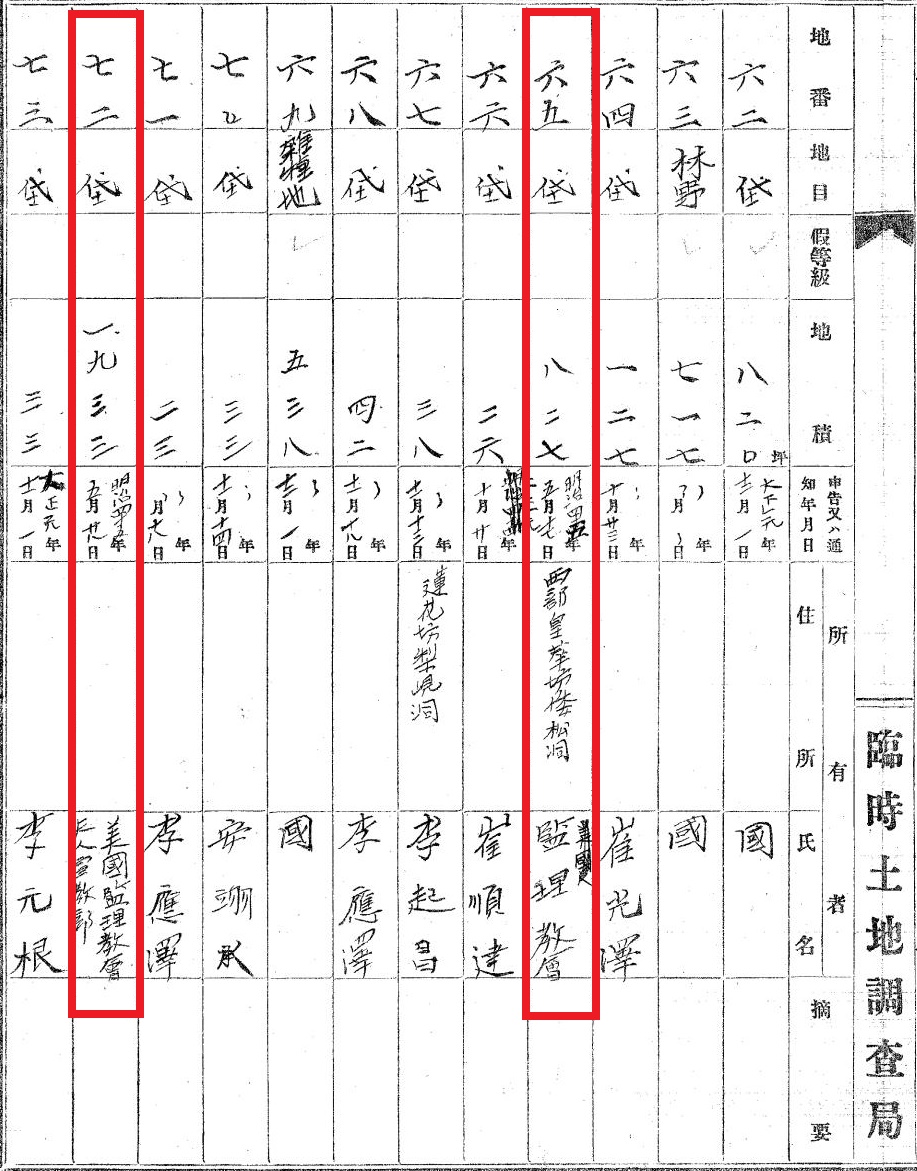 臨時土地調査局
地番 地目 假等級 地積 申告又ハ通知年月日 所有者 住所 氏名 摘要
六二 垈 八二〇坪 大正元年 十二月一日 國
六三 林野 七一七 月 日 國
六四 垈 一二七 年 十月廿三日 崔光澤
六五 垈 八二七 明治四五年 五月十七日 西部皇華坊倭松洞 監理教會
六六 垈 二六 年 十月廿日 崔順達
六七 垈 三八 年 十二月十三日 蓮花坊梨峴洞 李起昌
六八 垈 四二 年 十二月十九日 李應澤
六九 雜種地 五三八 年 十二月一日 國
七〇 垈 三三 年 十二月十四日 安翊承
七一 垈 二三 年 月 日 李應澤
七二 垈 一、九三三 明治四五年 五月廿九日 美國監理教會
夫人宣教部
七三 垈 三三 大正元年 十二月一日 李元根